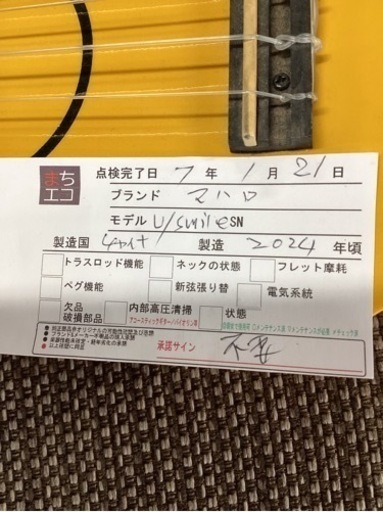 まち
エコ
点検完了日 7 年 1 月 21 日
ブランド マハロ
モデル U/smile SN
製造国 チャイナ 製造 2024 年頃
トラスロッド機能 ネックの状態 フレット摩耗
ペグ機能 新弦張り替え 電気系統
欠品
破損部品 内部高圧清掃 状態
アコースティックギター/バイオリン等
承諾サイン 不要